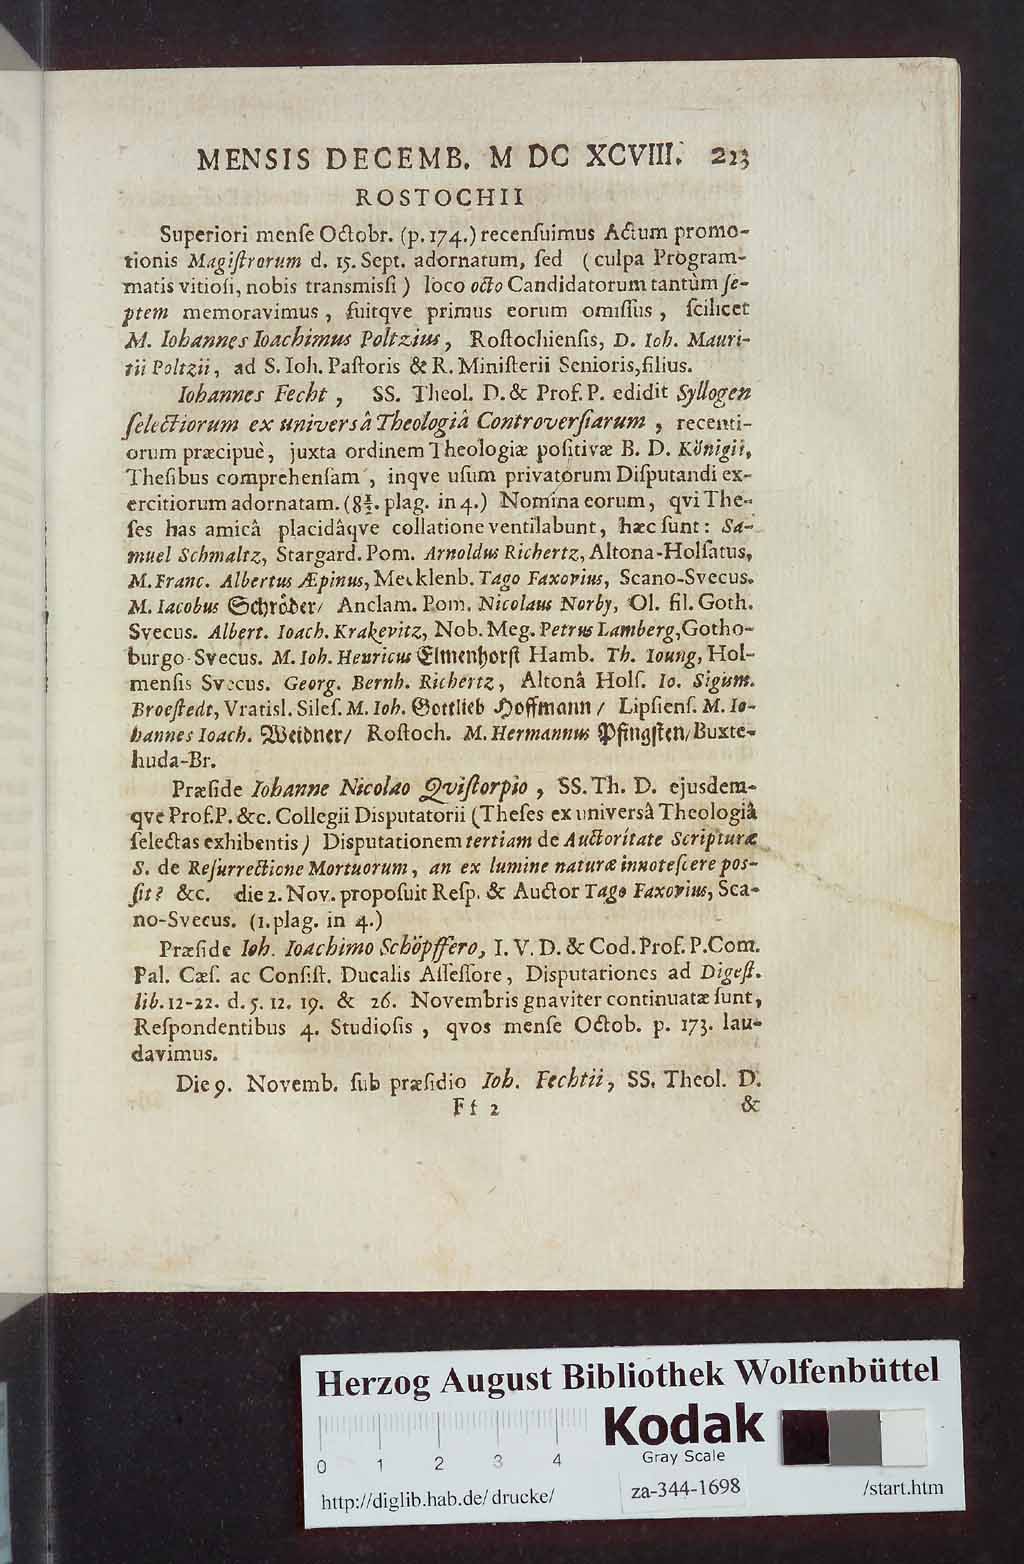 MENSIS DECEMB. M DC XCVIII. 213
ROSTOCHII
Superiori menſe Octobr. (p. 174.) recenſuimus Actum promo-
tionis Magiſtrorum d. 15. Sept. adornatum, ſed (culpa Program-
matis vitioſi, nobis transmiſſi) loco octo Candidatorum tantùm ſe-
ptem memoravimus, fuitqve primus eorum omiſſus, ſcilicet
M. Iohannes Ioachimus Poltzius, Roſtochienſis, D. Ioh. Mauri-
tii Poltzii, ad S. Ioh. Paſtoris & R. Miniſterii Senioris, filius.
Iohannes Fecht, SS. Theol. D. & Prof. P. edidit Syllogen
ſelectiorum ex universâ Theologiâ Controverſiarum, recenti-
orum præcipuè, juxta ordinem Theologiæ poſitivæ B. D. Königii,
Theſibus comprehenſam, inqve uſum privatorum Diſputandi ex-
ercitiorum adornatam. (8½. plag. in 4.) Nomina eorum, qvi The-
ſes has amicâ placidâqve collatione ventilabunt, hæc ſunt: Sa-
muel Schmaltz, Stargard. Pom. Arnoldus Richertz, Altona-Holſatus,
M. Franc. Albertus Æpinus, Mecklenb. Tago Faxovius, Scano-Svecus.
M. Iacobus Schröder/ Anclam. Pom. Nicolaus Norby, Ol. fil. Goth.
Svecus. Albert. Ioach. Krakevitz, Nob. Meg. Petrus Lamberg, Gotho-
burgo-Svecus. M. Ioh. Henricus Elmenhorſt Hamb. Th. Ioung, Hol-
menſis Svecus. Georg. Bernh. Richertz, Altonâ Holſ. Io. Sigum.
Broeſtedt, Vratisl. Sileſ. M. Ioh. Gottlieb Hoffmann/ Lipſienſ. M. Io-
hannes Ioach. Weidner/ Roſtoch. M. Hermannus Pfingſten/ Buxte-
huda-Br.
Præſide Iohanne Nicolao Qviſtorpio, SS. Th. D. ejusdem-
qve Prof. P. &c. Collegii Disputatorii (Theſes ex universâ Theologiâ
ſelectas exhibentis) Disputationem tertiam de Auctoritate Scripturæ
S. de Reſurrectione Mortuorum, an ex lumine naturæ innoteſcere pos-
ſit? &c. die 2. Nov. propoſuit Reſp. & Auctor Tago Faxovius, Sca-
no-Svecus. (1. plag. in 4.)
Præſide Ioh. Ioachimo Schöpffero, I. V. D. & Cod. Prof. P. Com.
Pal. Cæſ. ac Conſiſt. Ducalis Aſſeſſore, Disputationes ad Digeſt.
lib. 12-22. d. 5. 12. 19. & 26. Novembris gnaviter continuatæ ſunt,
Reſpondentibus 4. Studioſis, qvos menſe Octob. p. 173. lau-
davimus.
Die 9. Novemb. ſub præſidio Ioh. Fechtii, SS. Theol. D.
Ff 2 &
Herzog August Bibliothek Wolfenbüttel
Kodak
Gray Scale
0 1 2 3 4
http://diglib.hab.de/drucke/ za-344-1698 /start.htm